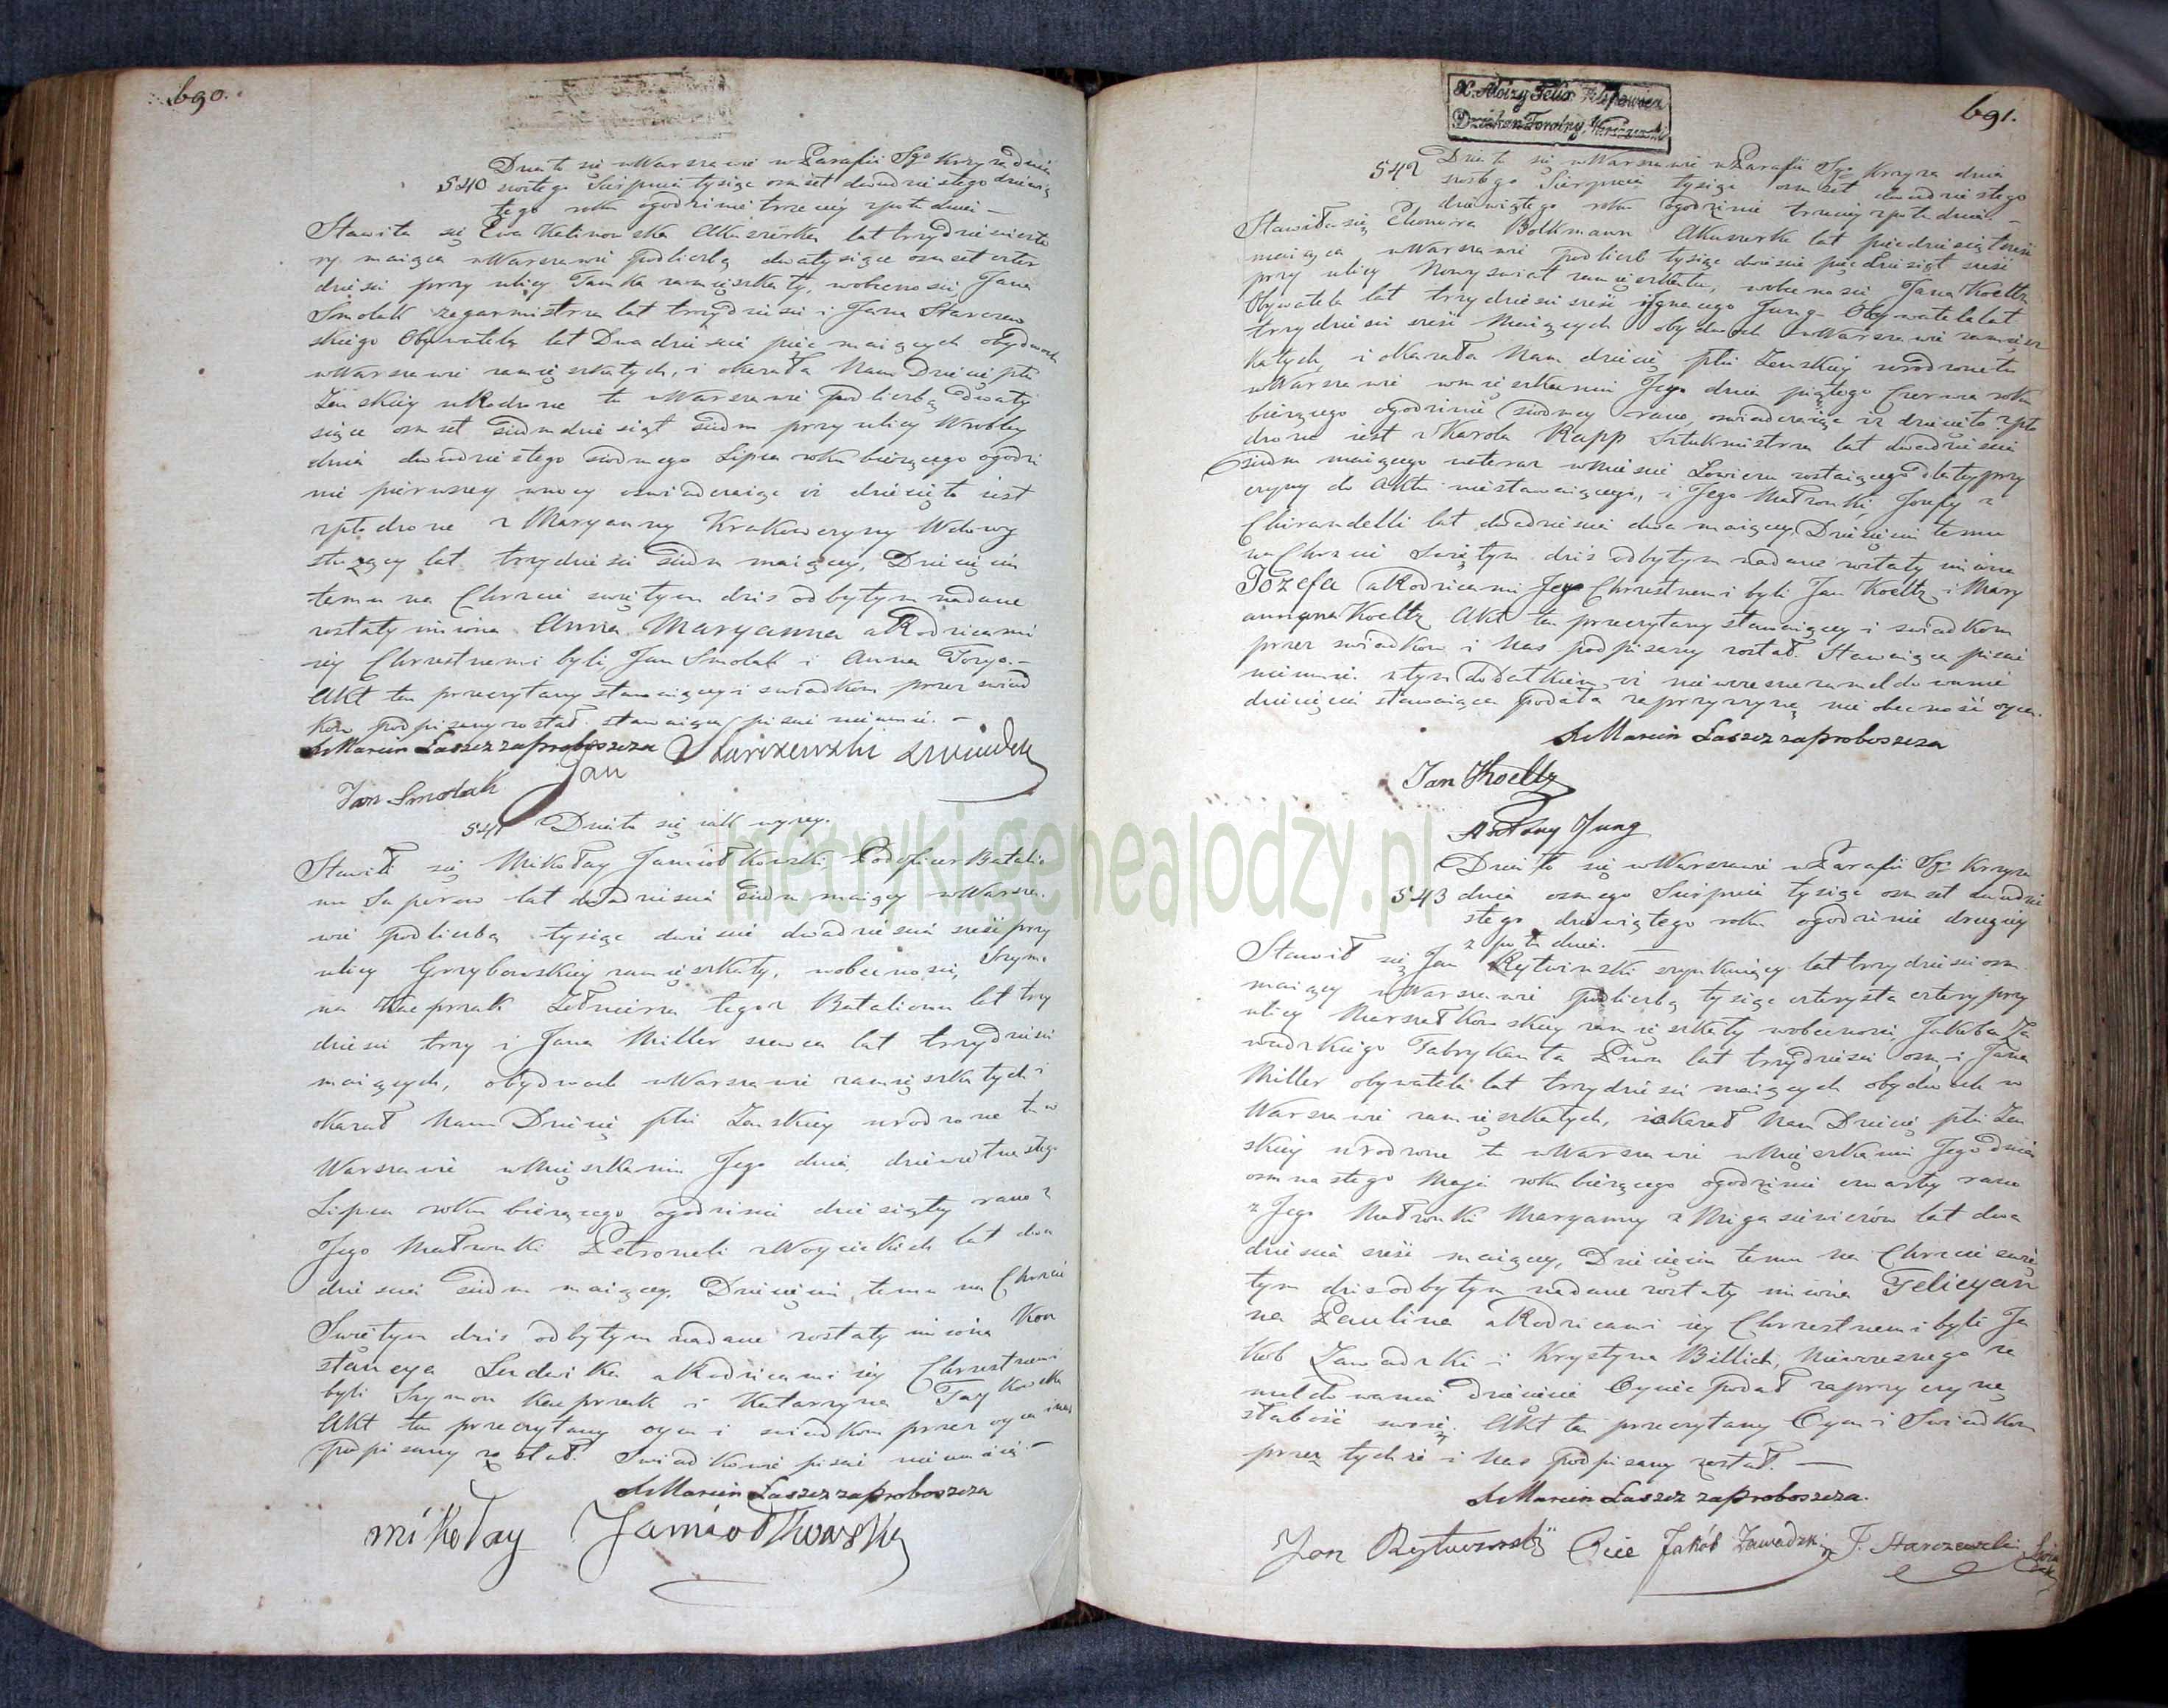 690.
Działo się w Warszawie w Parafii Sgo Krzyża dnia
540 szóstego Sierpnia tysiąc osmset dwudziestego dziewią
tego roku o godzinie trzeciej z południa —
Stawiła się Ewa Kalinowska Akuszerka lat trzydzieści czte
ry maiąca w Warszawie pod liczbą dwa tysiące osmset czter
dzieści przy ulicy Tamka zamięszkały, w obecności Jana
Smolak zegarmistrza lat trzydzieści i Jana Starczew
skiego Obywatela lat Dwadzieścia pięć maiących obydwóch
w Warszawie zamięszkałych, i okazała Nam Dziecię płci
Żeńskiey urodzone tu w Warszawie pod liczbą dwa ty
siące osmset siedmdziesiąt siedm przy ulicy Wróbley
dnia dwudziestego siódmego Lipca roku bieżącego o godzi
nie pierwszey w nocy oświadczaiąc iż dziecię to iest
spłodzone z Maryanny Krakowczyny Wdowy
służącey lat trzydzieści siedm maiącey, Dziecięciu
temu na Chrzcie świętym dziś odbytym nadane
zostały imiona Anna Maryanna a Rodzicami
iey Chrzestnemi byli Jan Smolak i Anna —
Akt ten przeczytany stawaiącey i świadkom przez świad
ków podpisany został. stawaiąca pisać nieumie. —
X Marcin Łaszcz za proboszcza Starczewski świadek
Jan
Jan Smolak
541 Działo się iak wyżey.
Stawił się Mikołay Jamiołkowski, Podoficer Batalio
nu Saperow lat dwadzieścia siedm maiący w Warsza
wie pod liczbą tysiąc dwieście dwadzieścia sześć przy
ulicy Grzybowskiey zamięszkały, w obecności, Szymo
na Kacprzak Żołnierza tegoż Batalionu lat trzy
dzieści trzy i Jana Miller szewca lat trzydzieści
maiących, obydwóch w Warszawie zamięszkałych i
okazał Nam Dziecię płci Żeńskiey urodzone tu w
Warszawie w Mięszkaniu Jego dnia dziewiętnastego
Lipca roku bieżącego o godzinie dziesiątey rano z
Jego Małżonki Petroneli z Woycickich lat dwa
dzieścia siedm maiącey, Dziecięciu temu na Chrzcie
Świętym dziś odbytym nadane zostały imiona Kon
stancya Ludwika a Rodzicami iey Chrzestnemi
byli Szymon Kacprzak i Katarzyna
Akt ten przeczytany oycu i świadkom przez oyca i nas
podpisany został. Świadkowie pisać nieumieią. —
X Marcin Łaszcz za proboszcza
mikołay Jamiołkowski
X. Aloizy Felix
Dziekan Foralny Warszawski
691.
542 Działo się w Warszawie w Parafii Sgo Krzyża dnia
szóstego Sierpnia tysiąc osmset dwudziestego
dziewiątego roku o godzinie trzeciey z południa. —
Stawiła się Eleonora Bolkmann Akuszerka lat pięćdziesiąt sześć
maiąca w Warszawie pod liczb tysiąc dwieście pięćdziesiąt sześć
przy ulicy Nowy świat zamięszkała, w obecności Jana Koeltz
Obywatela lat trzydzieści sześć i Jgnacego Jung Obywatela lat
trzydzieści sześć Maiących obydwóch w Warszawie zamięsz
kałych, i okazała Nam dziecię płci Żenskiey urodzone tu
w Warszawie w mięszkaniu Jego dnia piątego Czerwca roku
bieżącego o godzinie siódmey rano, oświadczaiąc iż dziecię to spło
dzone iest z Karola Rapp Sztukmistrza lat dwadzieścia
siedm maiącego teraz w Mieście Łowiczu zostaiącego dla tey przy
czyny do Aktu niestawaiącego, i Jego Małżonki Józefy z
Chirandelli lat dwadzieścia dwa maiącey, Dziecięciu temu
na Chrzcie Świętym dziś odbytym nadane zostały imiona
Józefa a Rodzicami Jego Chrzestnemi byli Jan Koeltz i Mary
anna Koeltz Akt ten przeczytany stawaiącey i świadkom
przez świadków i Nas podpisany został. Stawaiąca pisać
nieumie. z tym dodatkiem iż niewczesne zameldowanie
dziecięcia stawaiąca podała za przyczynę nie obecność oyca.
X Marcin Łaszcz za proboszcza
Jan Koeltz
Jung
Działo się w Warszawie w Parafii Sgo Krzyża
543 dnia osmego Sierpnia tysiąc osmset dwudzie
stego dziewiątego roku o godzinie drugiey
z południa. —
Stawił się Jan Rytwinski szynkuiący lat trzydzieści osm
maiący w Warszawie pod liczbą tysiąc czterysta cztery przy
ulicy Marszałkowskiey zamięszkały w obecności Jakóba Za
wadzkiego Fabrykanta Piwa lat trzydzieści osm i Jana
Miller obywatela lat trzydzieści maiących obydwóch w
Warszawie zamięszkałych, i okazał Nam Dziecię płci Żeń
skiey urodzone tu w Warszawie w Mięszkaniu Jego dnia
osmnastego Maja roku bieżącego o godzinie czwartey rano
z Jego Małżonki Maryanny z Migasiewiczów lat dwa
dzieścia sześć maiącey, Dziecięciu temu na Chrzcie świę
tym dziś odbytym nadane zostały imiona Felicyan
na Paulina a Rodzicami iey Chrzestnemi byli Ja
kób Zawadzki i Krystyna Billich, Niewczesnego za
meldowania dziecięcia Oyciec podał za przyczynę
słabość swoię. Akt ten przeczytany Oycu i Świadkom
przez tychże i Nas podpisany został. —
X Marcin Łaszcz za proboszcza.
Jan Jakób Zawadzki J. Starczewski